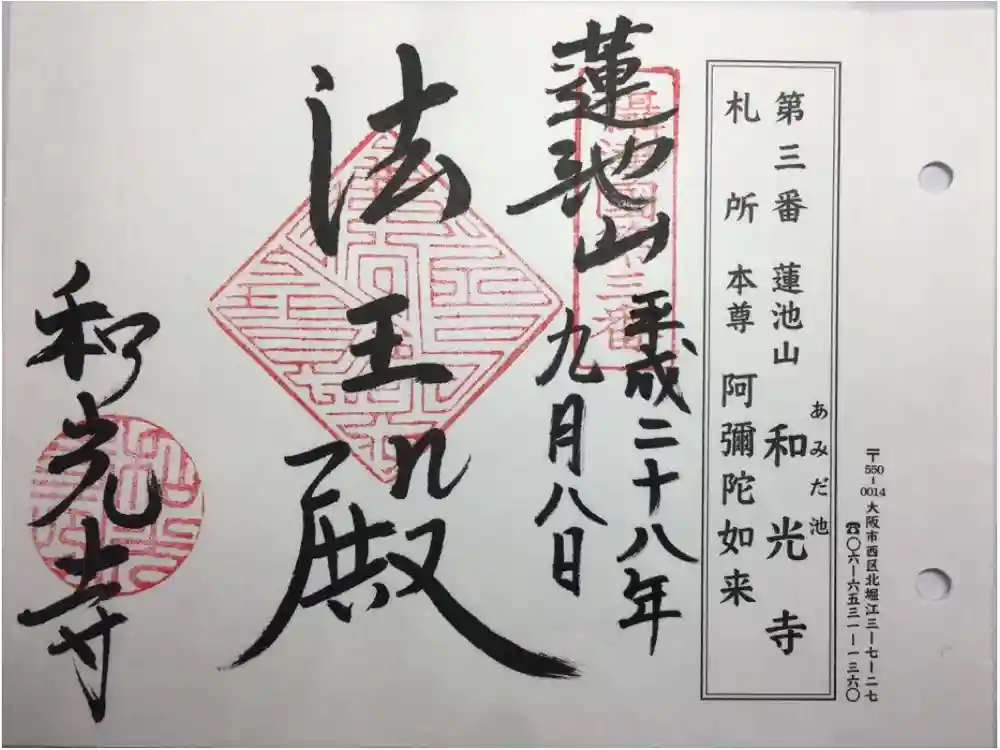 〒550-0014 大阪市西区北堀江三-七-二七
☎〇六-六五三一-一三六〇
あみだ池
第三番 蓮池山 和光寺
札所本尊 阿彌陀如来
蓮池山
平成二十八年
九月八日
法王殿
和光寺